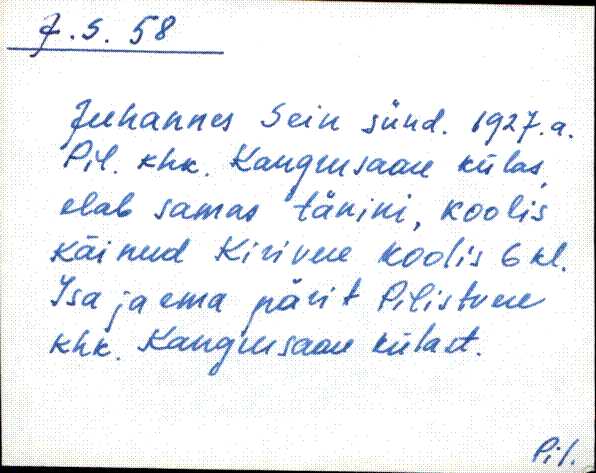 J. S. 58
Juhannes Sein sünd. 1927.a.
Pil. khk. Kangrusaare külas,
elab samas tänini, koolis
käinud Kirivere koolis 6 kl.
Isa ja ema pärit Pilistvere
khk. Kangrusaare külast.
Pil.